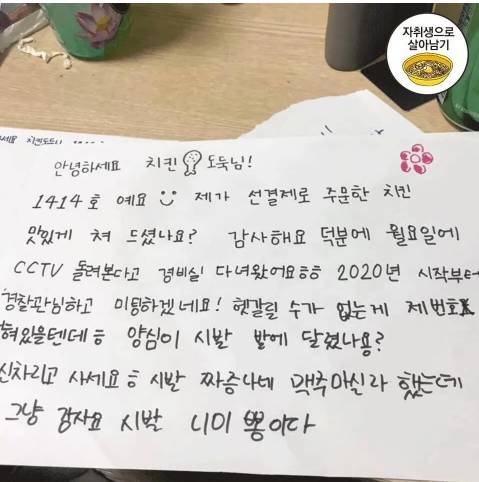 자취생으로
살아남기
안녕하세요 치킨 도둑님!
1414호 예요 제가 선결제로 주문한 치킨
맛있게 쳐 드셨나요? 감사해요 덕분에 월요일에
CCTV 돌려본다고 경비실 다녀왔어요ㅎㅎ 2020년 시작부터
경찰관님하고 미팅하겠네요! 헷갈릴 수가 없는게 제번호도
혀있을텐데ㅎ 양심이 시발 밭에 달렸나용?
신차리고 사세요ㅎ 시발 짜증나네 맥주마실라 했는데
그냥 잠자요 시발 니미 뽕이다